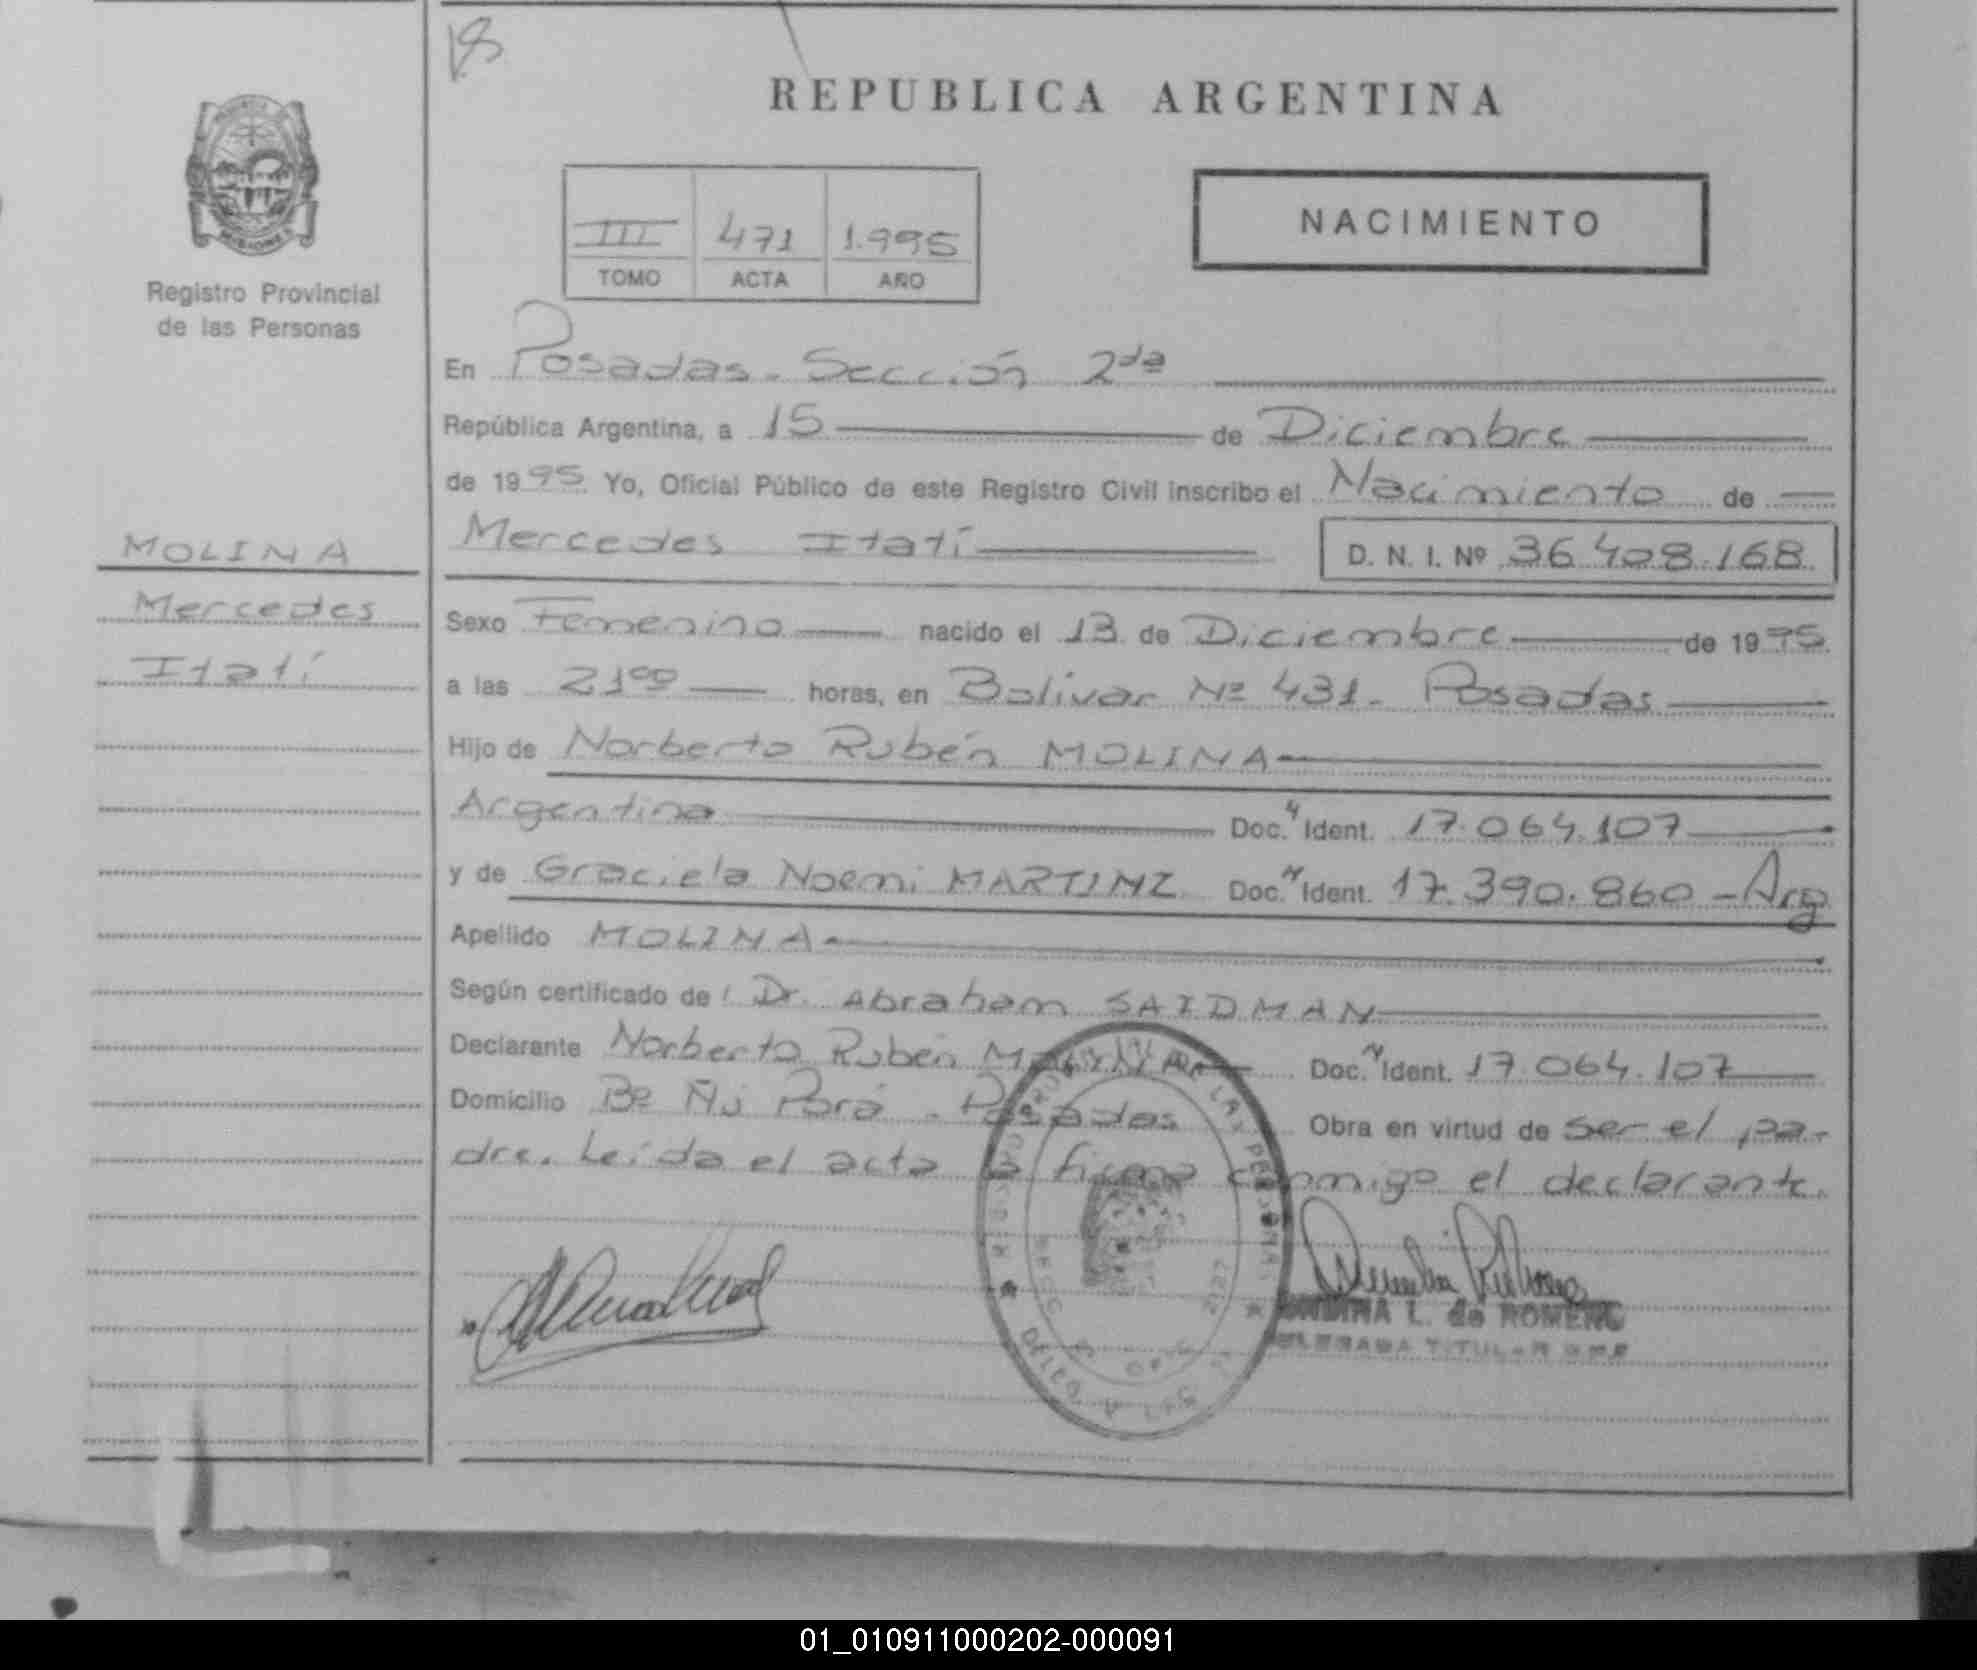 REPUBLICA ARGENTINA
MISIONES
Registro Provincial
de las Personas
III 471 1.995
TOMO ACTA AÑO
NACIMIENTO
En Posadas - Sección 2da
República Argentina, a 15 de Diciembre
de 1995 Yo, Oficial Público de este Registro Civil inscribo el Nacimiento de
Mercedes Itatí D. N. I. Nº 36.408.168
MOLINA
Mercedes
Itatí
Sexo Femenino nacido el 13 de Diciembre de 1995
a las 21⁰⁰ horas, en Bolivar Nº 431 - Posadas
Hijo de Norberto Rubén MOLINA
Argentina Doc. Ident. 17.064.107
y de Graciela Noemi MARTINZ Doc. Ident. 17.390.860 - Arg
Apellido MOLINA
Según certificado de Dr. Abraham SAIDMAN
Declarante Norberto Rubén Doc. Ident. 17.064.107
Domicilio Bº Ñu Porá - Posadas Obra en virtud de ser el pa-
dre. Leída el acta la firma conmigo el declarante.
L. de ROMERO
TITULAR
01_010911000202-000091